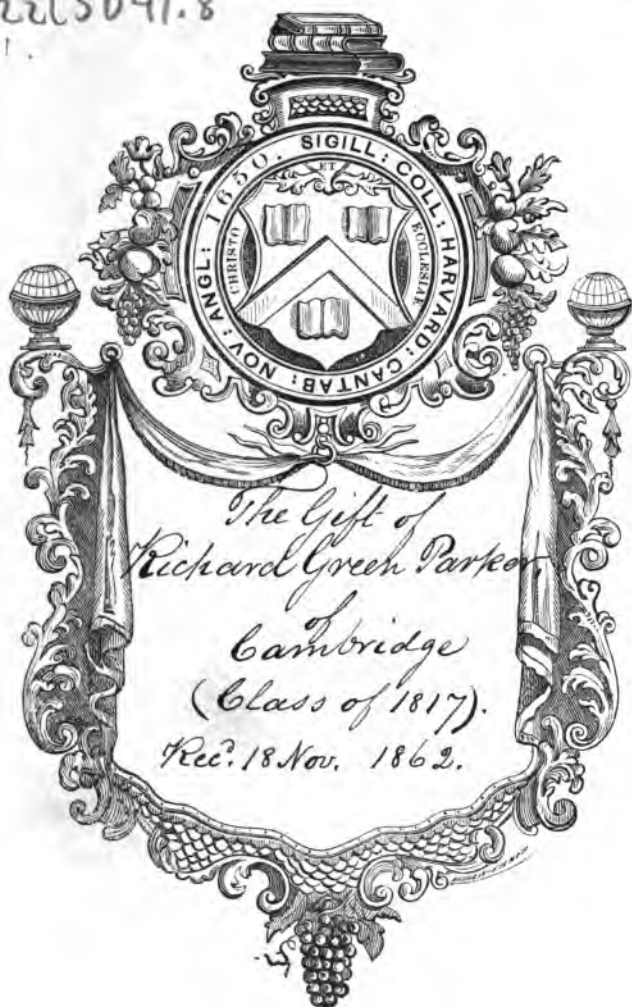 SIGILL: COLL: HARVARD: CANTAB: NOV: ANGL: 1650.
CHRISTO ET ECCLESIAE
The Gift of
Richard Green Parker,
of
Cambridge
(Class of 1817).
Rec'd. 18 Nov. 1862.